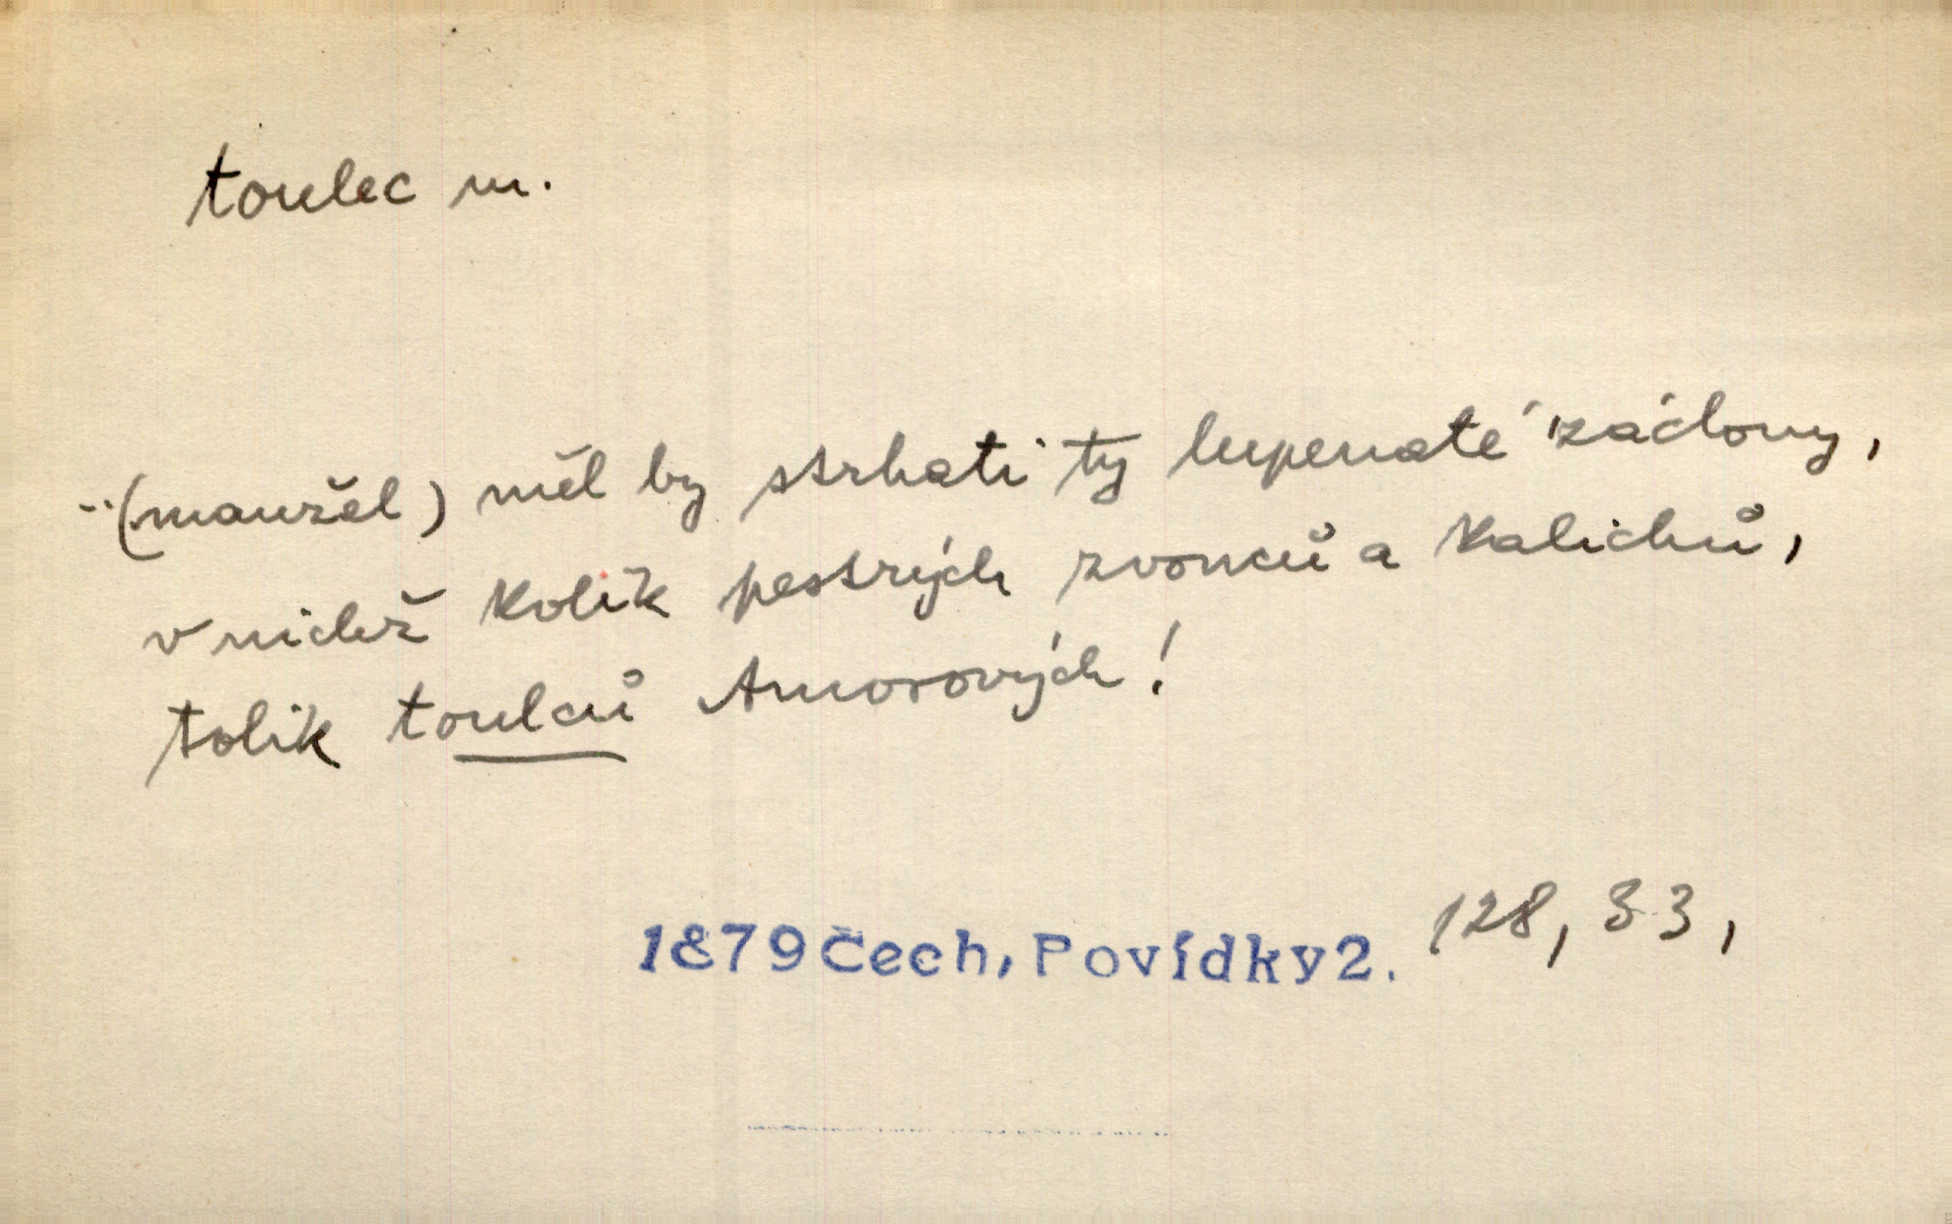 toulec m.
..(manžel) měl by strhati ty lupenaté záclony,
v nichž kolik pestrých zvonců a kalichů,
tolik toulců Amorových!
1879 Čech, Povídky 2. 128, 33,